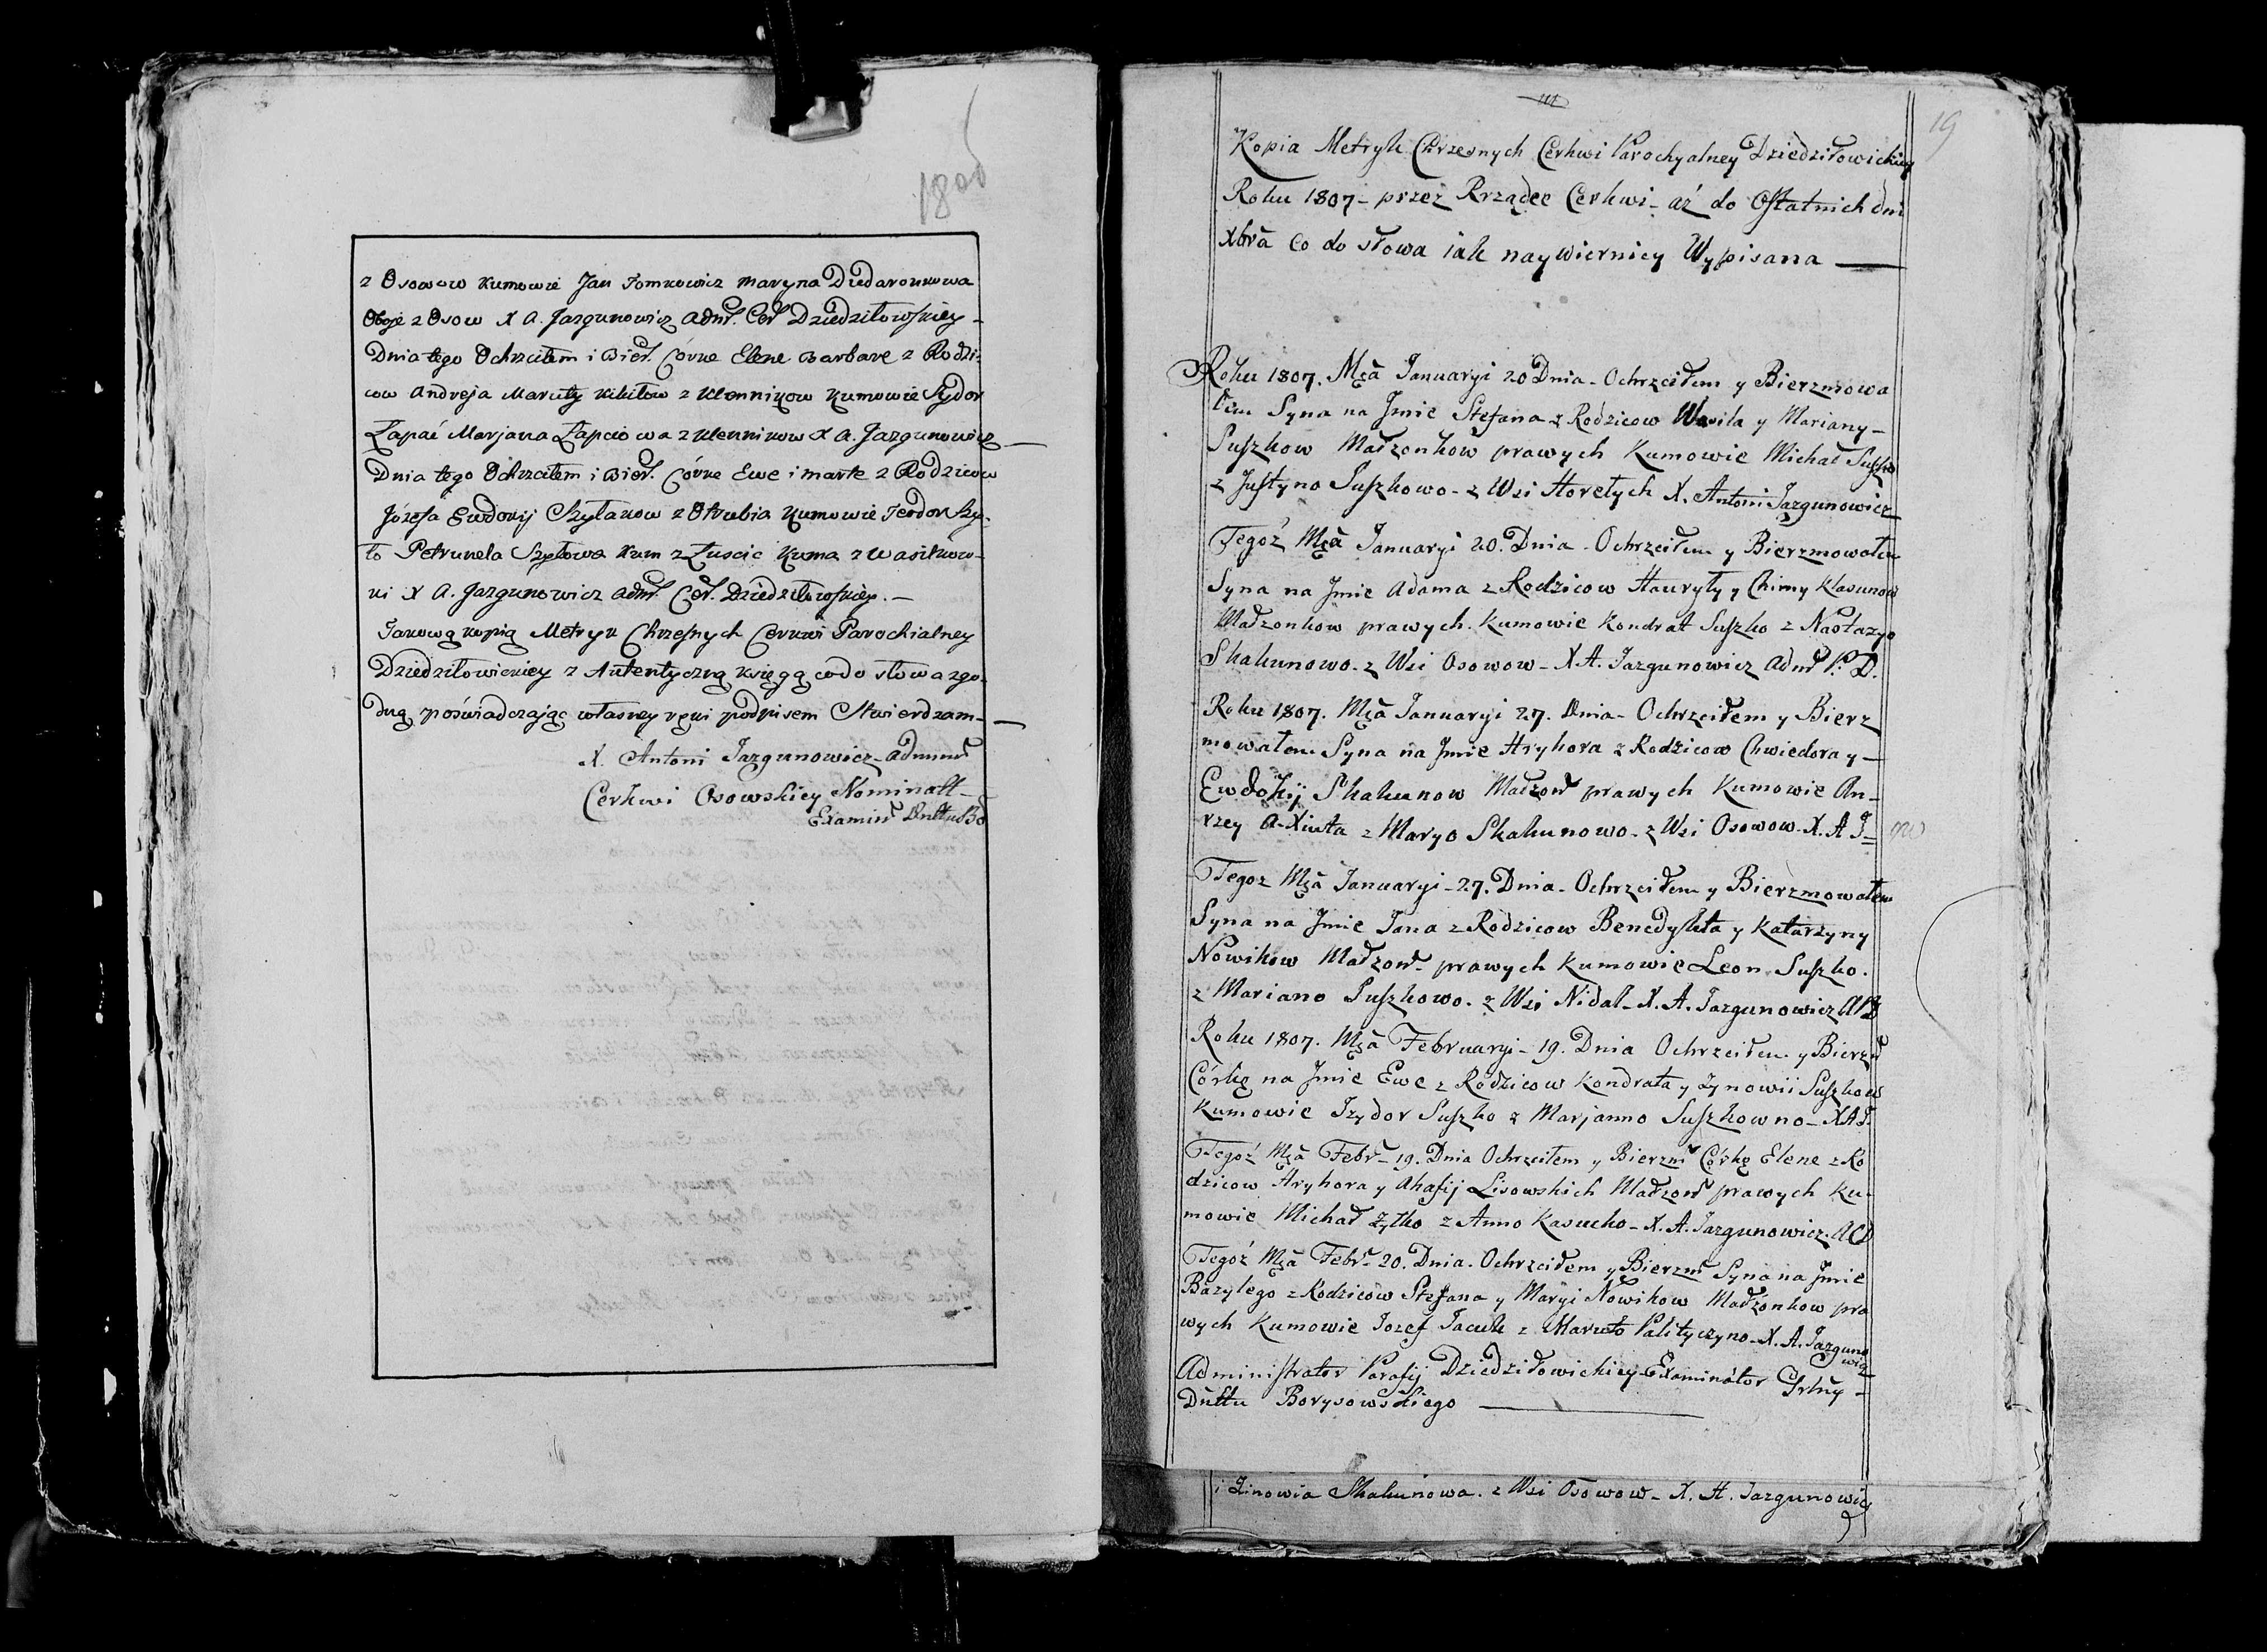 1806
z Osowow Kumowie Jan Tomkowicz Maryna Dudaronkowa
Oboje z Osow X A. Jazgunowicz Admr. Cer Dziedziłowskiey -
Dnia tego Ochrzciłem i Bier. Córke Elene Barbare z Rodzi-
cow Andreja Maruty Nikitow z Klennikow Kumowie Sydor
Łapać Marjana Łapciowa z Klennikow X A. Jazgunowicz
Dnia tego Ochrzciłem i Bier. Córke Ewe i Marte z Rodzicow
Józefa Ewdokij Szyłakow z Otrubia Kumowie Teodor Szy-
ło Petrunela Szyłowa Kum z Łuscic Kuma z Wasilkow-
ki X A. Jazgunowicz Admr. Cer. Dziedziłowskiey. -
Takową kopią Metryk Chrzesnych Cerkwi Parochialney
Dziedziłowickiey z Autentyczną księgą co do słowa zgo-
dną poświadczając własney ręki podpisem Stwierdzam -
X. Antoni Jazgunowicz Admnr
Cerkwi Osowskiey Nominatt -
Examinr Dnttu Bo
19
Kopia Metryk Chrzesnych Cerkwi Parochyalney Dziedziłowickiey
Roku 1807 - przez Rrządce Cerkwi - aż do Ostatnich dni
Xbra Co do słowa iak naywierniey Wypisana
Roku 1807. Mca Januaryi 20 Dnia - Ochrzciłem y Bierzmowa
łem Syna na Jmie Stefana z Rodzicow Wasila y Mariany -
Suszkow Małżonkow prawych Kumowie Michał Suszko
z Justyno Suszkowo - z Wsi Horełych X. Antoni Jazgunowicz
Tegoż Mca Januaryi 20. Dnia - Ochrzciłem y Bierzmowałem
Syna na Jmie Adama z Rodzicow Hauryły y Chimy Klasunow
Małżonkow prawych. Kumowie Kondrat Suszko z Nastazyo
Skakunowo - z Wsi Osowow - X. A. Jazgunowicz Admr P. D.
Roku 1807. Mca Januaryi 27. Dnia - Ochrzciłem y Bierz
mowałem Syna na Jmie Hryhora z Rodzicow Chwiedora y -
Ewdokij Skakunow Małżon prawych Kumowie An-
rzey A-Xiuta z Maryo Skakunowo - z Wsi Osowow - X. A J -
Tegoz Mca Januaryi - 27. Dnia - Ochrzciłem y Bierzmowałem
Syna na Jmie Jana z Rodzicow Benedykta y Katarzyny
Nowikow Małżon - prawych Kumowie Leon Suszko.
z Mariano Suszkowo - z Wsi Nidal - X. A. Jazgunowicz APD
Roku 1807. Mca Februaryi - 19. Dnia Ochrzciłem y Bierzm
Córkę na Jmie Ewe z Rodzicow Kondrata y Zynowii Suszkow
Kumowie Jzydor Suszko z Marjanno Suszkowno - X A J.
Tegoż Mca Febr - 19. Dnia Ochrzciłem y Bierzm Córkę Elene z Ro
dzicow Hryhora y Ahafij Lisowskich Małżon prawych Ku-
mowie Michał Żytko z Anno Kasucko - X. A. Jazgunowicz. A CD
Tegoż Mca Febr - 20. Dnia. Ochrzciłem y Bierzm Syna na Jmie
Bazylego z Rodzicow Stefana y Maryi Nowikow Małżonkow pra
wych Kumowie Jozef Jacuk z Maruto Palityczyno - X. A. Jazguno
wicz
Administrator Parafij Dziedziłowickiey - Examinator
Dnttu Borysowskiego
i Zinowia Skakunowa. z Wsi Osowow - X. A. Jazgunowicz